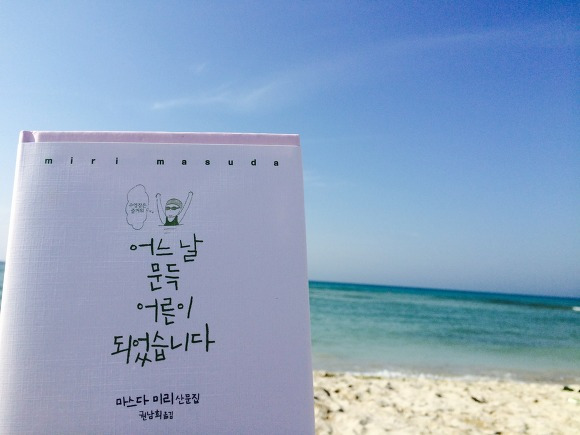 miri masuda
어느 날
문득
어른이
되었습니다
마스다 미리 산문집
권남희 옮김